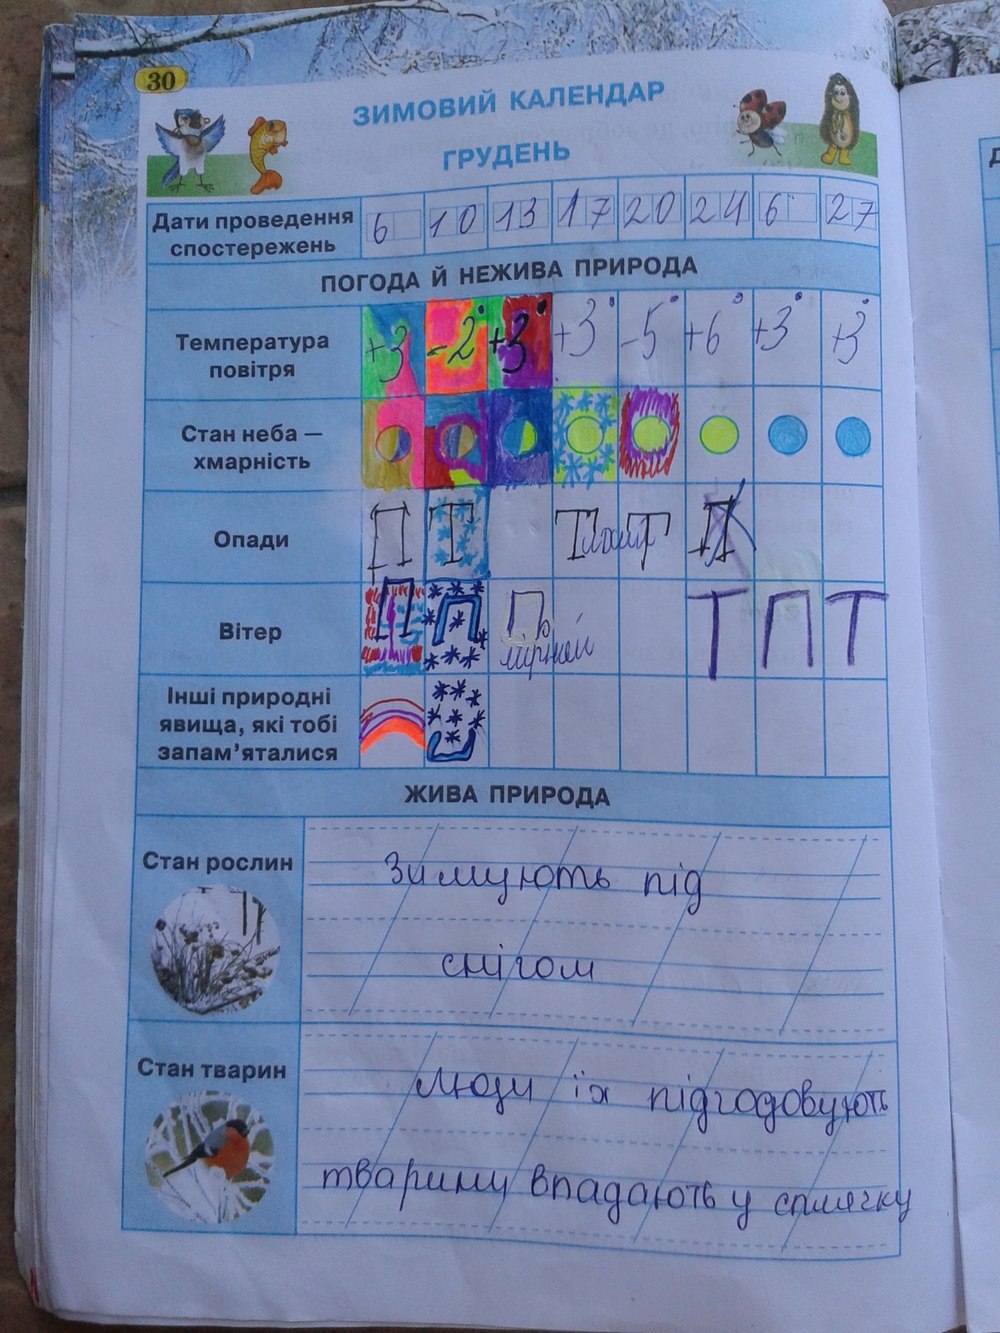 30
ЗИМОВИЙ КАЛЕНДАР
ГРУДЕНЬ
Дати проведення
спостережень
6 10 13 17 20 24 6 27
ПОГОДА Й НЕЖИВА ПРИРОДА
Температура
повітря
+3 -2° +3° +3° -5° +6° +3° +3°
Стан неба —
хмарність
Опади
П Т Т Т
Вітер
П П П Т П Т
мірний
Інші природні
явища, які тобі
запам’яталися
ЖИВА ПРИРОДА
Стан рослин
Зимують під
снігом
Стан тварин
люди їх підгодовують
тварини впадають у сплячку